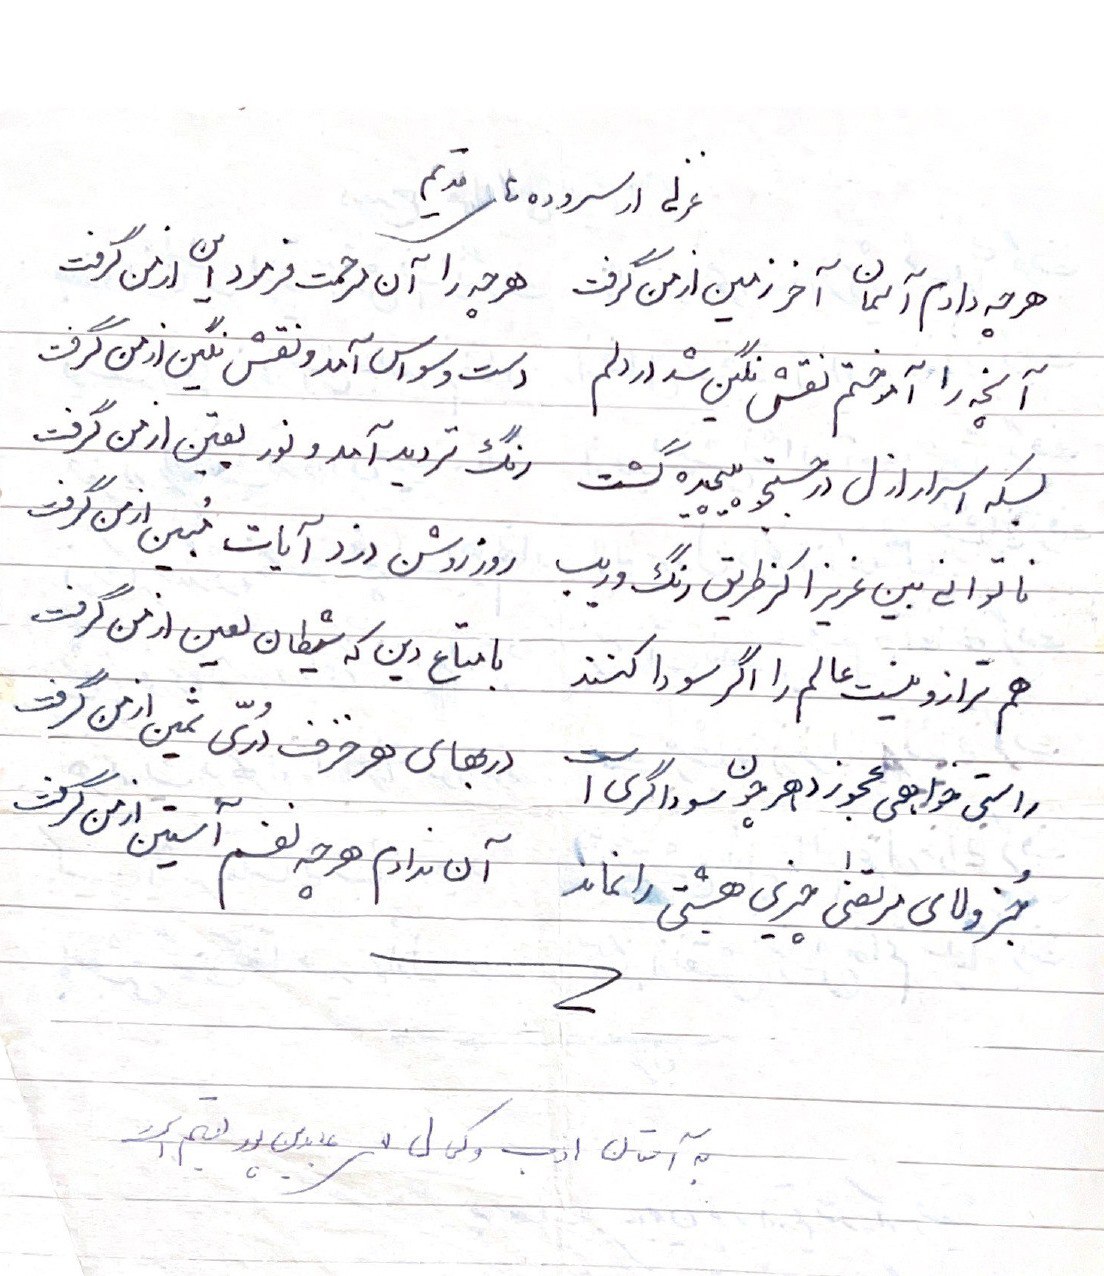 غزلی از سروده های قدیم
هرچه دادم آسمان آخر زمین از من گرفت هرچه را آن مرحمت فرمود این از من گرفت
آنچه را آموختم نقش نگین شد در دلم دست وسواس آمد و نقش نگین از من گرفت
بسکه اسرار ازل در جستجو پیچیده گشت رنگ تردید آمد و نور یقین از من گرفت
ناتوانی بین عزیزا کز طریق رنگ و ریب روز روشن دزد آیات مبین از من گرفت
هم ترازو نیست عالم را اگر سودا کنند با متاع دین که شیطان لعین از من گرفت
راستی خواهی عجوز دهر چون سوداگری است در بهای هر خزف دُرّی ثمین از من گرفت
جُز ولای مرتضی چیزی بهشتی را نماند آن ندادم هرچه نفسم آستین از من گرفت
به آستان ادب و کمال